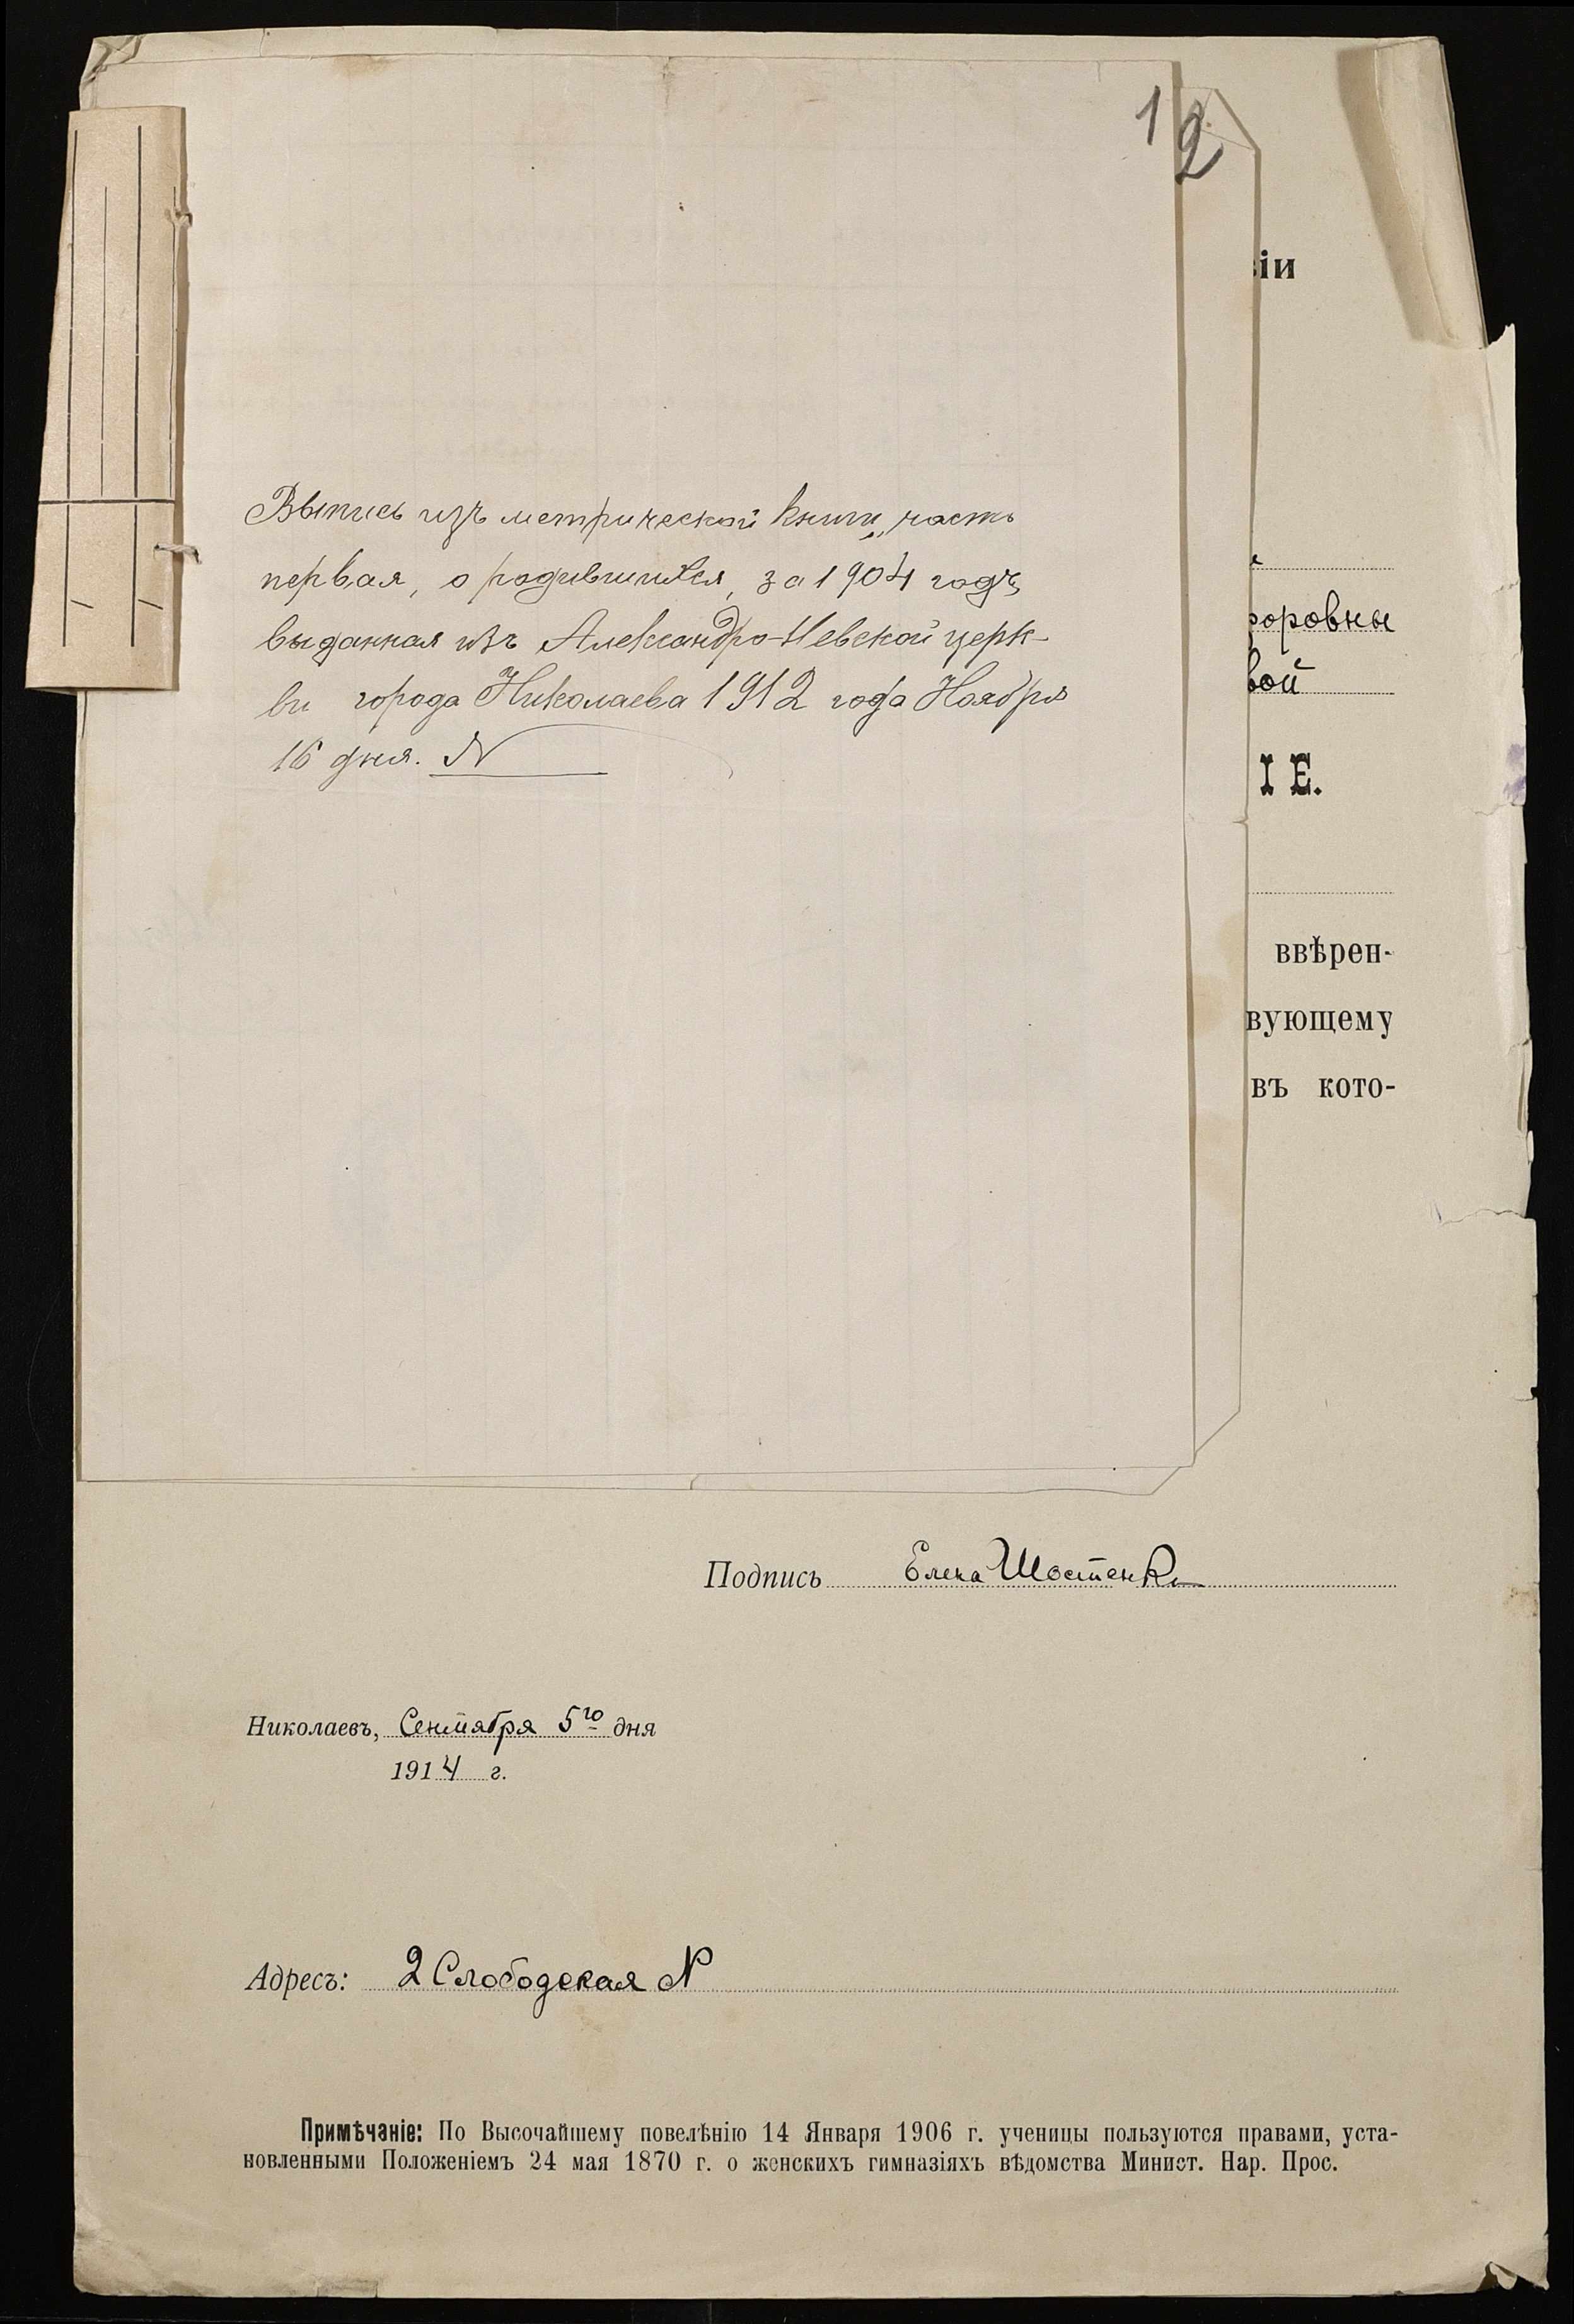 1
2
Выпись изъ метрической книги, часть
первая, о родившихся, за 1904 годъ,
выданная изъ Александро-Невской церк-
ви города Николаева 1912 года Ноября
16 дня. N
зіи
ровны
вой
І Е.
ввѣрен-
вующему
въ кото-
Подпись Елена
Николаевъ, Сентября 5го дня
1914 г.
Адресъ: 2 Слободская N
Примѣчаніе: По Высочайшему повелѣнію 14 Января 1906 г. ученицы пользуются правами, уста-
новленными Положеніемъ 24 мая 1870 г. о женскихъ гимназіяхъ вѣдомства Минист. Нар. Прос.